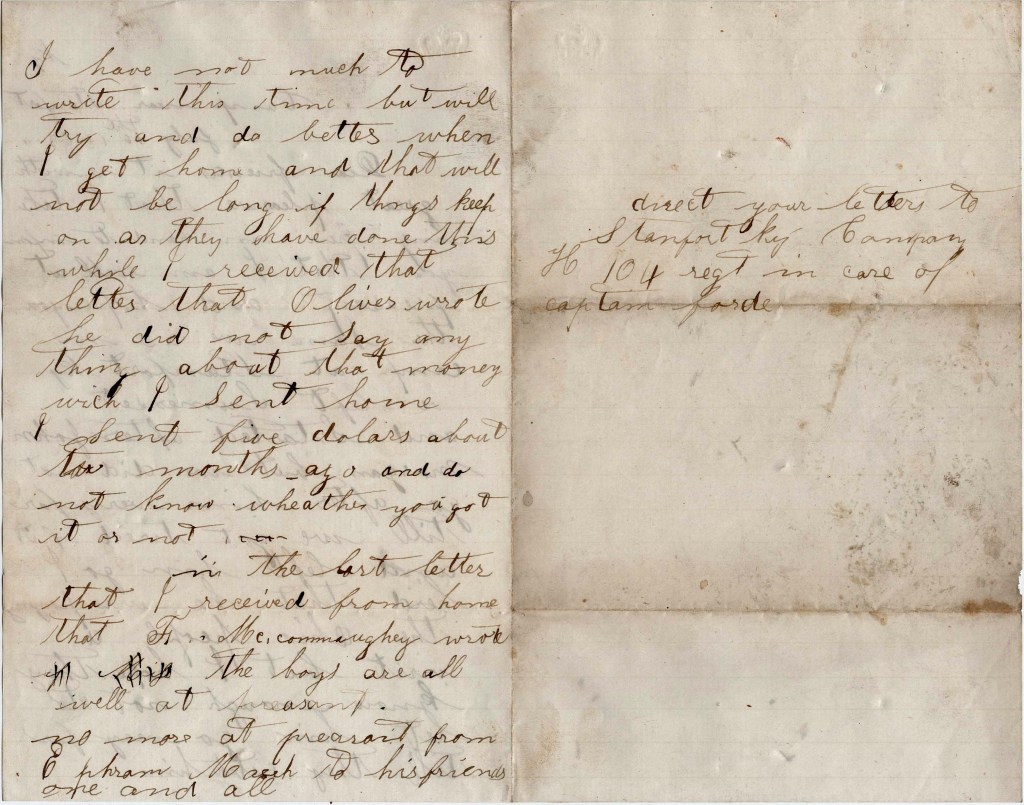 I have not much to
write this time but will
try and do better when
I get home and that will
not be long if thngs keep
on as they have done this
while I received that
letter that Oliver wrote
he did not say any
thing about that money
wich I sent home
I sent five dolars about
months ago and do
not know wheather you got
it or not
in the last letter
that I received from home
that F. Mc.connaughey wrote
the boys are all
well at preasant.
no more at preasant from
Ephram March to his friends
one and all
direct your letters to
Stanfort Ky Company
H 104 regt in care of
captam forde